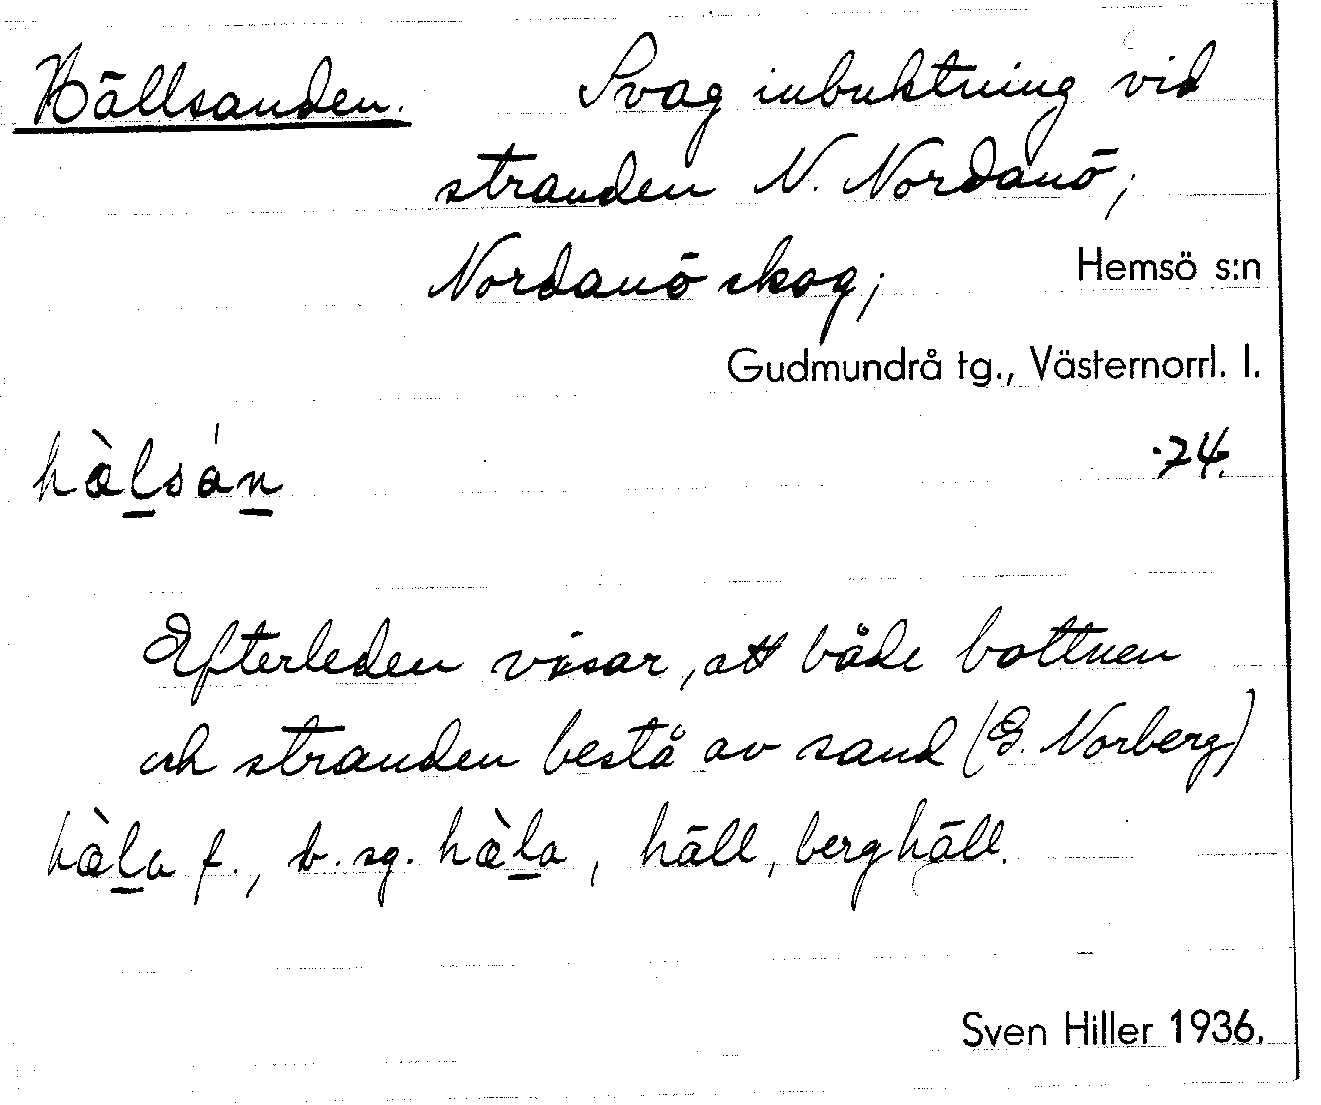 Hällsanden. Svag inbuktning vid
stranden N. Nordanö;
Nordanö skog; Hemsö s:n
Gudmundrå tg., Västernorrl. l.
hæ̀l̲sán̲ ·74.
Efterleden visar, att både bottnen
och stranden bestå av sand (E. Norberg)
hæ̀l̲a f., b. sg. hæ̀l̲a, häll, berghäll.
Sven Hiller 1936.